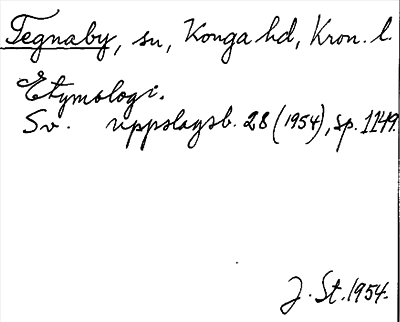 Tegnaby, sn, Konga hd, Kron. l.
Etymologi.
Sv. uppslagsb. 28 (1954), sp. 1149.
J. St. 1954.